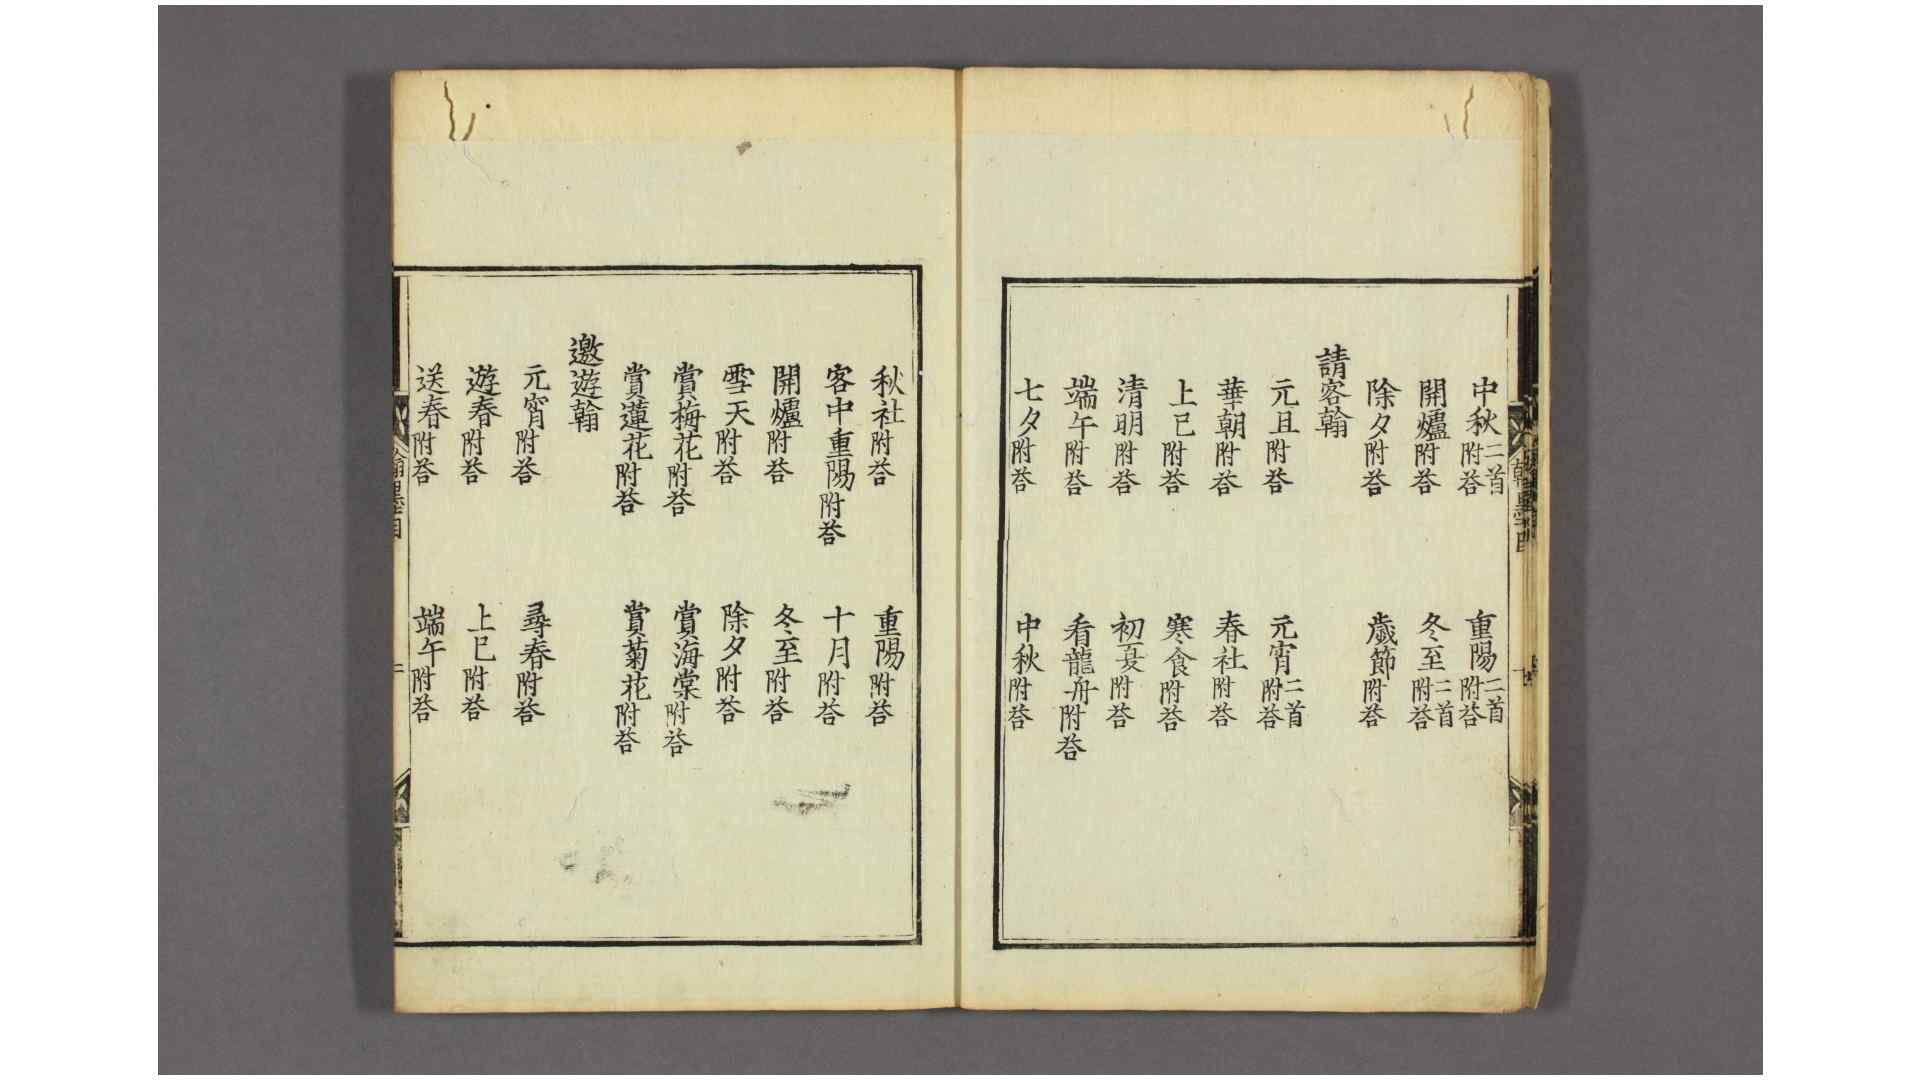 中秋二首附荅 重陽二首附荅
開爐附荅 冬至二首附荅
除夕附荅 歳節附荅
請客翰
元旦附荅 元宵二首附荅
華朝附荅 春社附荅
上巳附荅 寒食附荅
清明附荅 初夏附荅
端午附荅 看龍舟附荅
七夕附荅 中秋附荅
秋社附荅 重陽附荅
客中重陽附荅 十月附荅
開爐附荅 冬至附荅
雪天附荅 除夕附荅
賞梅花附荅 賞海棠附荅
賞蓮花附荅 賞菊花附荅
邀遊翰
元宵附荅 尋春附荅
遊春附荅 上巳附荅
送春附荅 端午附荅